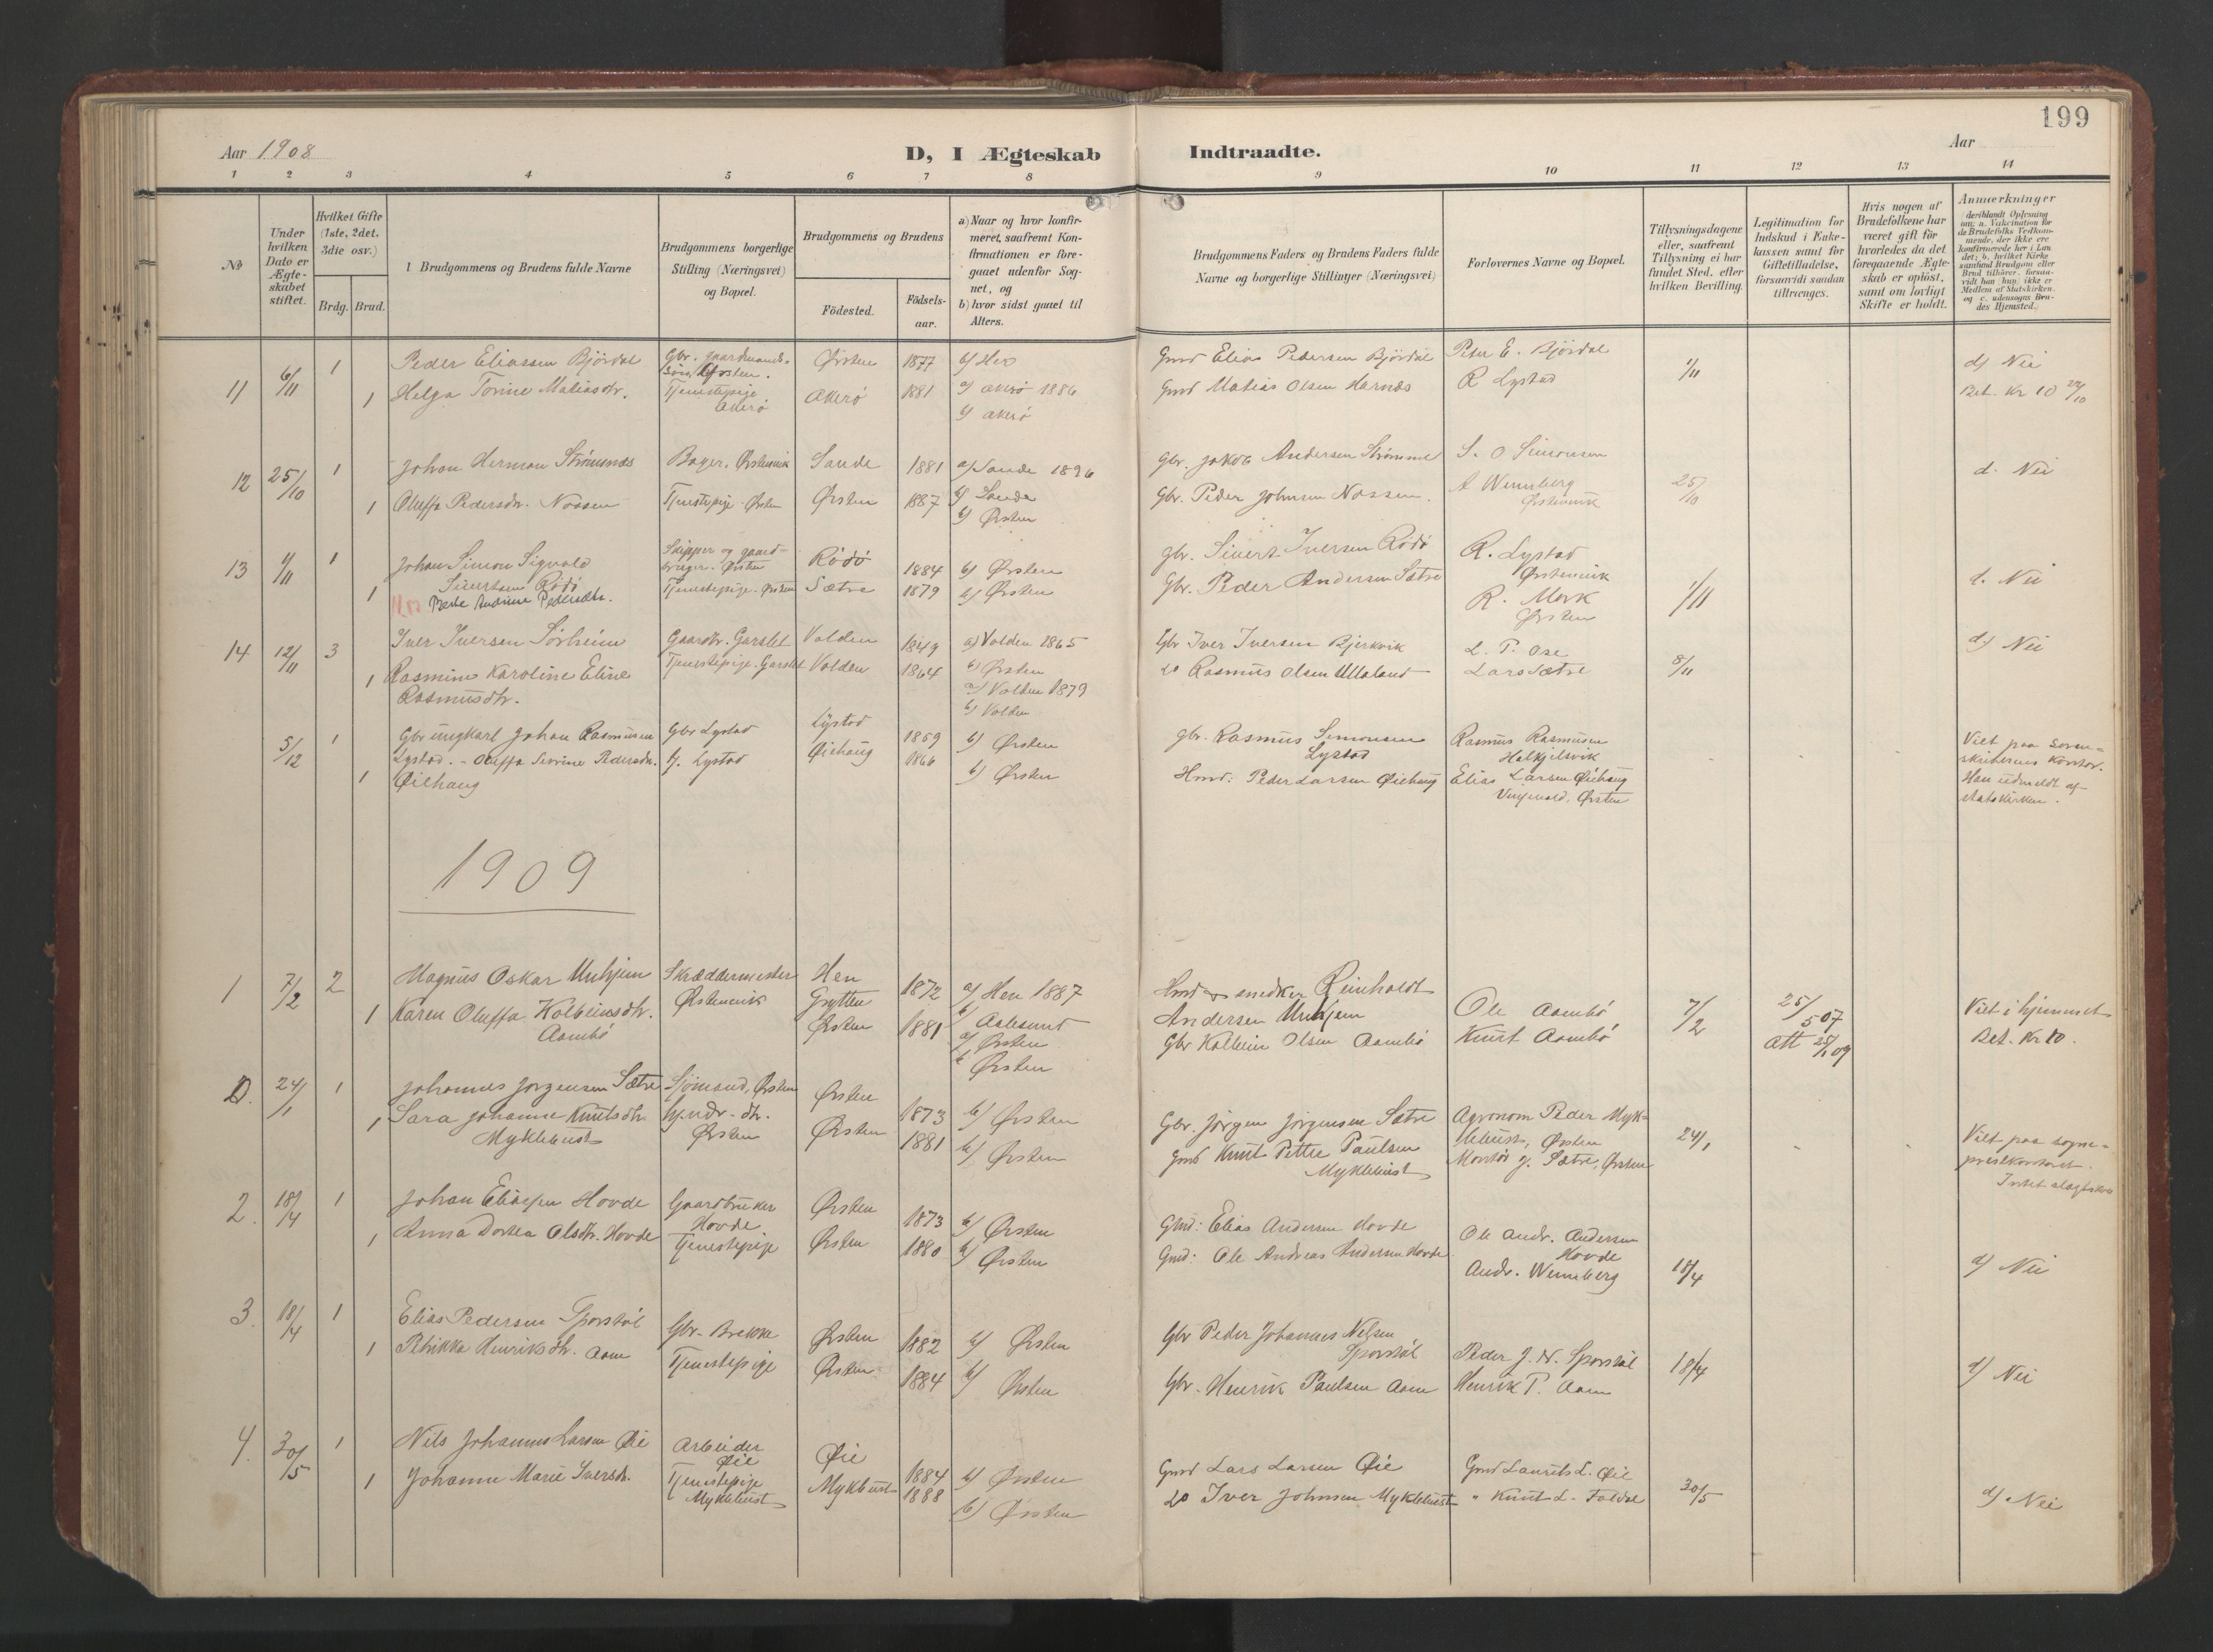 199
Aar 1908
D, I Ægteskab Indtraadte.
Aar
1 2 3 4 5 6 7 8 9 10 11 12 13 14
No
Under hvilken Dato er Ægteskabet stiftet.
Hvilket Gifte (1ste, 2det, 3die osv.)
Brdg. Brud.
Brudgommens og Brudens fulde Navne
Brudgommens borgerlige Stilling (Næringsvei) og Bopæl.
Brudgommens og Brudens
Fødested.
Fødselsaar.
a) Naar og hvor konfirmeret, saafremt Konfirmationen er foregaaet udenfor Sognet, og
b) hvor sidst gaaet til Alters.
Brudgommens Faders og Brudens Faders fulde Navne og borgerlige Stillinger (Næringsvei)
Forlovernes Navne og Bopæl.
Tillysningsdagene eller, saafremt Tillysning ei har fundet Sted, efter hvilken Bevilling.
Legitimation for Indskud i Enkekassen samt for Giftetilladelse, forsaavidt saadan tiltrænges.
Hvis nogen af Brudefolkene har været gift før hvorledes da det foregaaende Ægteskab er opløst, samt om lovligt Skifte er holdt.
Anmærkninger
deriblandt Oplysning om: a. Vaccination for de Brudefolks Vedkommende, der ikke ere konfirmerede her i Landet; b. hvilket Kirkesamfund Brudgom eller Brud tilhører, forsaavidt han (hun) ikke er Medlem af Statskirken, og c. udensogns Brudes Hjemsted.
11 6/11 1 Peder Eliassen Bjørdal Gbr. gaardmands- Ørsten 1877 b) Her Gmd Elias Pedersen Bjørdal Peter E. Bjørdal 1/11 d) Nei
søn, Ørsten.
1 Helga Torine Matiasdtr. Tjenestepige Akerø Akerø 1881 a) Akerø 1886 Gmd Matias Olsen Harnæs R Lystad Bet. Kr 10 22/10
b) Akerø
12 25/10 1 Johan Herman Strømnæs Bager. Ørstenvik Sande 1881 a) Sande 1896 Gbr. Jakob Andersen Strømme S. O Simonsen d. Nei
b) Sande
1 Oluffa Pedersdtr. Nossen Tjenestepige Ørsten Ørsten 1887 b) Ørsten Gbr. Peder Johnsen Nossen. A Wennberg Ørstenvik 25/10
13 1/11 1 Johan Simon Sigvald Skipper og gaard- Rødø 1884 b) Ørsten gbr. Sivert Iversen Rødø R. Lystad Ørstenvik d. Nei
Sivertsen Rødø bruger. Ørsten
1 Berte Andrine Pedersdtr. Tjenestepige. Ørsten Sætre 1879 b) Ørsten Gbr. Peder Andersen Sætre R. Mork Ørsten 1/11
14 12/11 3 Iver Iversen Sørheim Gaardbr. Garslet Volden 1849 a) Volden 1865 Gbr Iver Iversen Bjerkvik L. P. Ose d) Nei
b) Ørsten
1 Rasmine Karoline Eline Tjenestepige. Garslet Volden 1864 a) Volden 1879 do Rasmus Olsen Ullaland Lars Sætre 8/11
Rasmusdtr. b) Volden
5/12 1 Gbr ungkarl Johan Rasmussen Gbr Lystad Lystad 1859 b) Ørsten gbr. Rasmus Simonsen Lystad Rasmus Rasmussen Halkjelsvik Viet paa soren-
Lystad. - Oluffa Severine Pedersdtr. Lystad Øiehaug 1866 skriverens kontor.
1 Øiehaug b) Ørsten Hmd: Peder Larsen Øiehaug Elias Larsen Øiehaug Han udmeldt af
Ørsten statskirken.
1909
1 7/2 2 Magnus Oskar Unhjem Skræddermester Hen 1872 a) Hen 1887 Hmd og snedker Reinholdt Ole Aambø 7/2 25/5 07 Viet i hjemmet
Ørstenvik Grytten b) Aalesund Andersen Unhjem
1 Karen Oluffa Kolbeinsdtr. Aambø Ørsten 1881 a) Ørsten Gbr Kolbein Olsen Aambø Knut Aambø Att 25/1 09 Bet. Kr 10.
b) Ørsten
D. 24/1 1 Johannes Jørgensen Sætre Sjømand, Ørsten Ørsten 1873 b) Ørsten Gbr. Jørgen Jørgensen Sætre Agronom Peder Myk- 24/1 Viet paa sogne-
lebust, Ørsten
1 Sara Johanne Knutsdtr. Myklebust Ørsten Ørsten 1881 b) Ørsten Gmd Knut Petter Paulsen Myklebust Sætre, Ørsten prestkontoret.
2. 18/4 1 Johan Eliassen Hovde Gaardbruker Hovde Ørsten 1873 b) Ørsten Gmd: Elias Andersen Hovde Ole Andr. Andersen Hovde
1 Anna Dortea Olsdtr. Hovde Tjenestepige Ørsten 1880 b) Ørsten Gmd: Ole Andreas Andersen Hovde Andr. Wennberg 18/4 d) Nei
3. 18/4 1 Elias Pedersen Sporstøl Gbr. Brekka Ørsten 1882 b) Ørsten Gbr Peder Johannes Nelsen Sporstøl Peder J. N. Sporstøl 18/4
1 Petrikka Henriksdtr. Aam Tjenestepige Ørsten 1884 b) Ørsten Gbr. Henrik Paulsen Aam Henrik P. Aam d) Nei
4. 30/5 1 Nils Johannes Larsen Øie Arbeider Øie Øie 1884 b) Ørsten Gmd Lars Larsen Øie Gmd Laurits L. Øie
1 Johanne Marie Iversdtr. Tjenestepige Myklebust Myklebust 1888 b) Ørsten do Iver Johnsen Myklebust " Knut L. Foldal 30/5 d) Nei